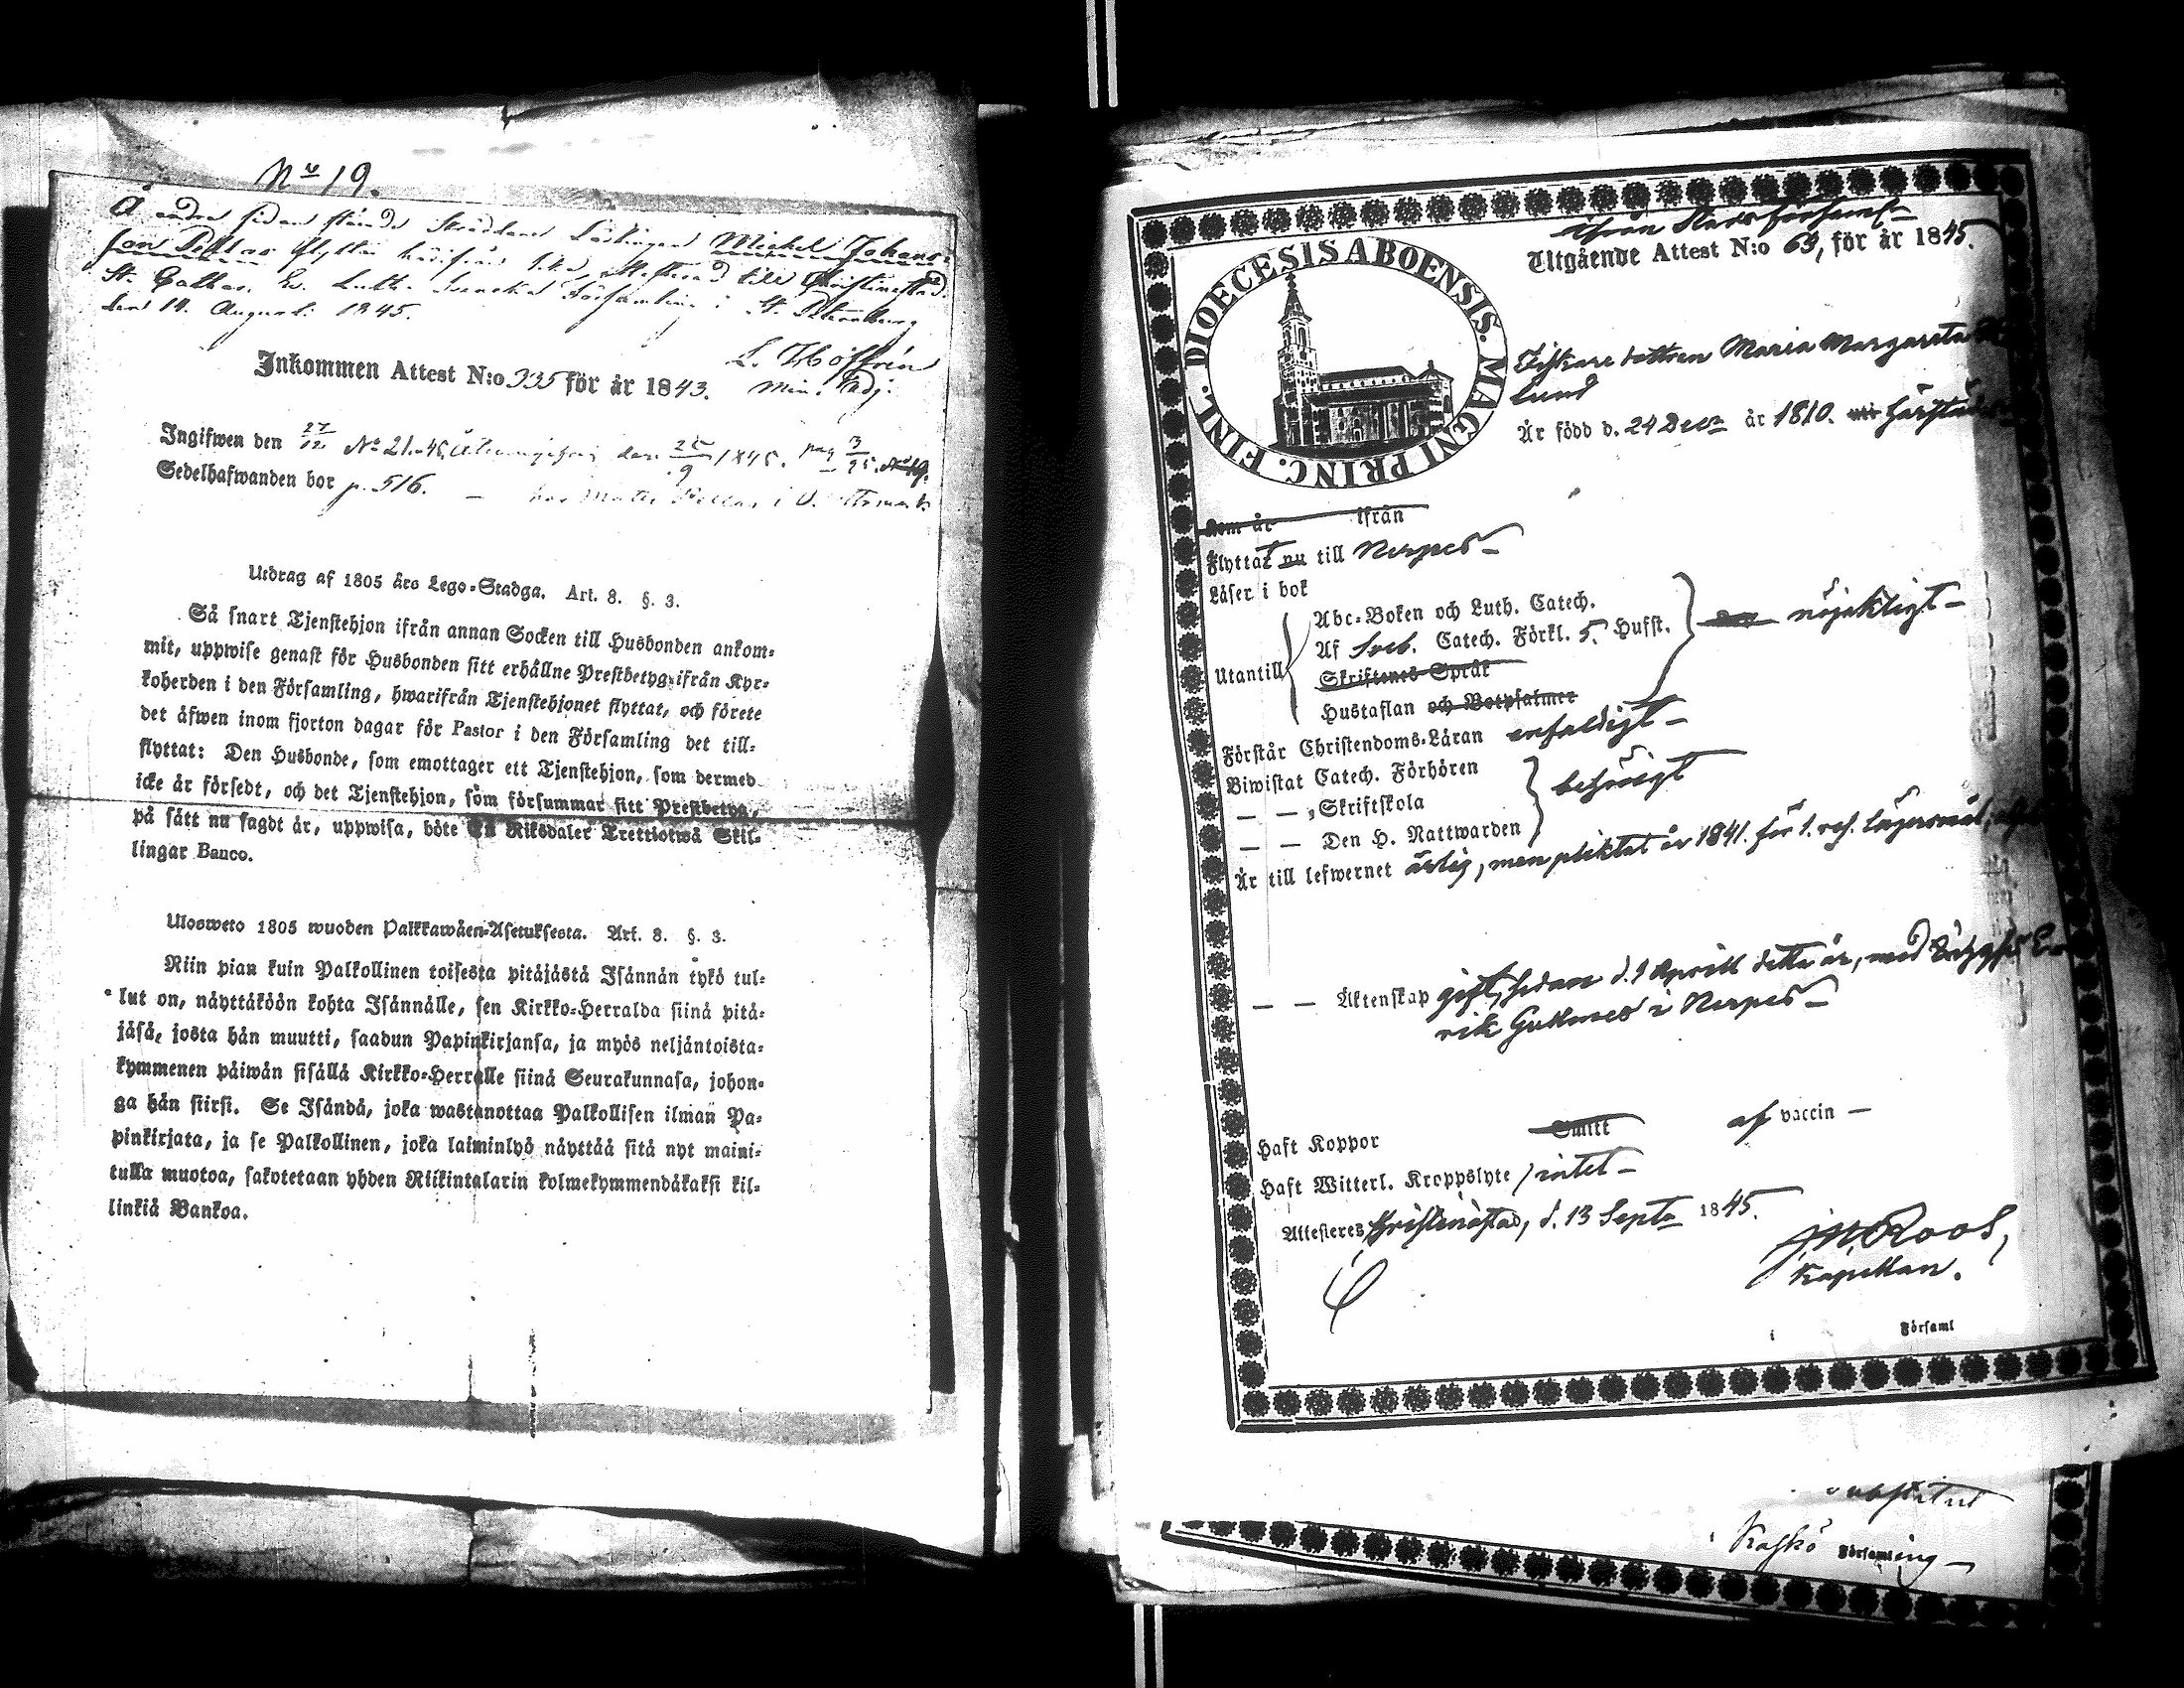 No 19.
Å andra sidan stående Skräddare Lärlingen Mickel Johans-
son Pellas flyttar härifrån till Christinestad.
St. Cathar. Ev. Luth. Svenska Församling i St. Petersburg
den 14 Augusti 1845.
Inkommen Attest N:o 335 för år 1843.
Min. Adj.
Ingifwen den 27/12 No 21.45 den 25/9 1845. pag 3/95.
Sedelhafwanden bor p. 516. —
Utdrag af 1805 års Lego-Stadga. Art. 8. §. 3.
Så snart Tjenstehjon ifrån annan Socken till Husbonden ankom-
mit, uppwise genast för Husbonden sitt erhållne Prestbetyg ifrån Kyr-
koherden i den Församling, hwarifrån Tjenstehjonet flyttat, och förete
det äfwen inom fjorton dagar för Pastor i den Församling det till-
flyttat: Den Husbonde, som emottager ett Tjenstehjon, som dermed
icke är försedt, och det Tjenstehjon, som försummar sitt Prestbetyg,
på sätt nu sagdt är, uppwisa, böte En Riksdaler Trettiotwå Skil-
lingar Banco.
Ulosweto 1805 wuoden Palkkawäen-Asetuksesta. Art. 8. §. 3.
Niin pian kuin Palkollinen toisesta pitäjästä Isännän tykö tul-
lut on, näyttäköön kohta Isännälle, sen Kirkko-Herralda siinä pitä-
jäsä, josta hän muutti, saadun Papinkirjansa, ja myös neljäntoista-
kymmenen päiwän sisällä Kirkko-Herralle siinä Seurakunnasa, johon-
ga hän siirsi. Se Isändä, joka wastanottaa Palkollisen ilman Pa-
pinkirjata, ja se Palkollinen, joka laiminlyö näyttää sitä nyt maini-
tulla muotoa, sakotetaan yhden Riikintalarin kolmekymmendäkaksi kil-
linkiä Bankoa.
ifrån Stadsförsaml-
Utgående Attest N:o 64, för år 1845.
DIOECESIS ABOENSIS. MAGNI PRINC. FINL.
Fiskare dottren Maria Margareta
lund
Är född d. 24 Decr år 1810. härstädes
Kom år ifrån
Flyttat nu till Nerpes—
Läser i bok
Abc-Boken och Luth. Catech.
Af Sveb. Catech. Förkl. 5. Husst. nöjaktigt—
Utantill
Skriftenes Språk
Hustaflan och Botpsalmer
Förstår Christendoms-Läran enfaldigt—
Biwistat Catech. Förhören
— — Skriftskola behörigt
— — Den H. Nattwarden
Är till lefwernet ärlig, men pliktat år 1841. för 1. res. lägersmål,
— — Äktenskap gift, sedan d. 9 Aprill detta år, med Er
rik Guttmes i Nerpes—
Haft Koppor Smitt af vaccin —
Haft Witterl. Kroppslyte intet—
Attesteres, Christinestad, d. 13 Septr 1845.
JMRoos,
Kapellan.
i Församl
substitut
i Kaskö Församling—